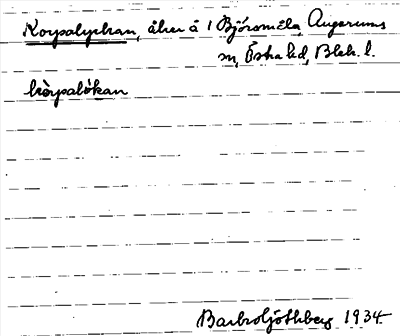 Korpalyckan, åker å 1 Björsmåla, Augerums
sn, Östra hd, Blek. l.
kòrpalókan
Barbro Ljöthberg 1934.